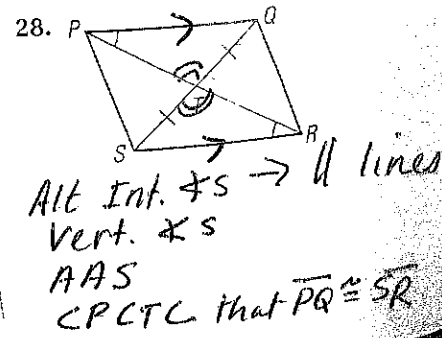 28. P Q
T
S R
Alt Int. ∡s → || lines
Vert. ∡s
AAS
CPCTC that PQ ≅ SR